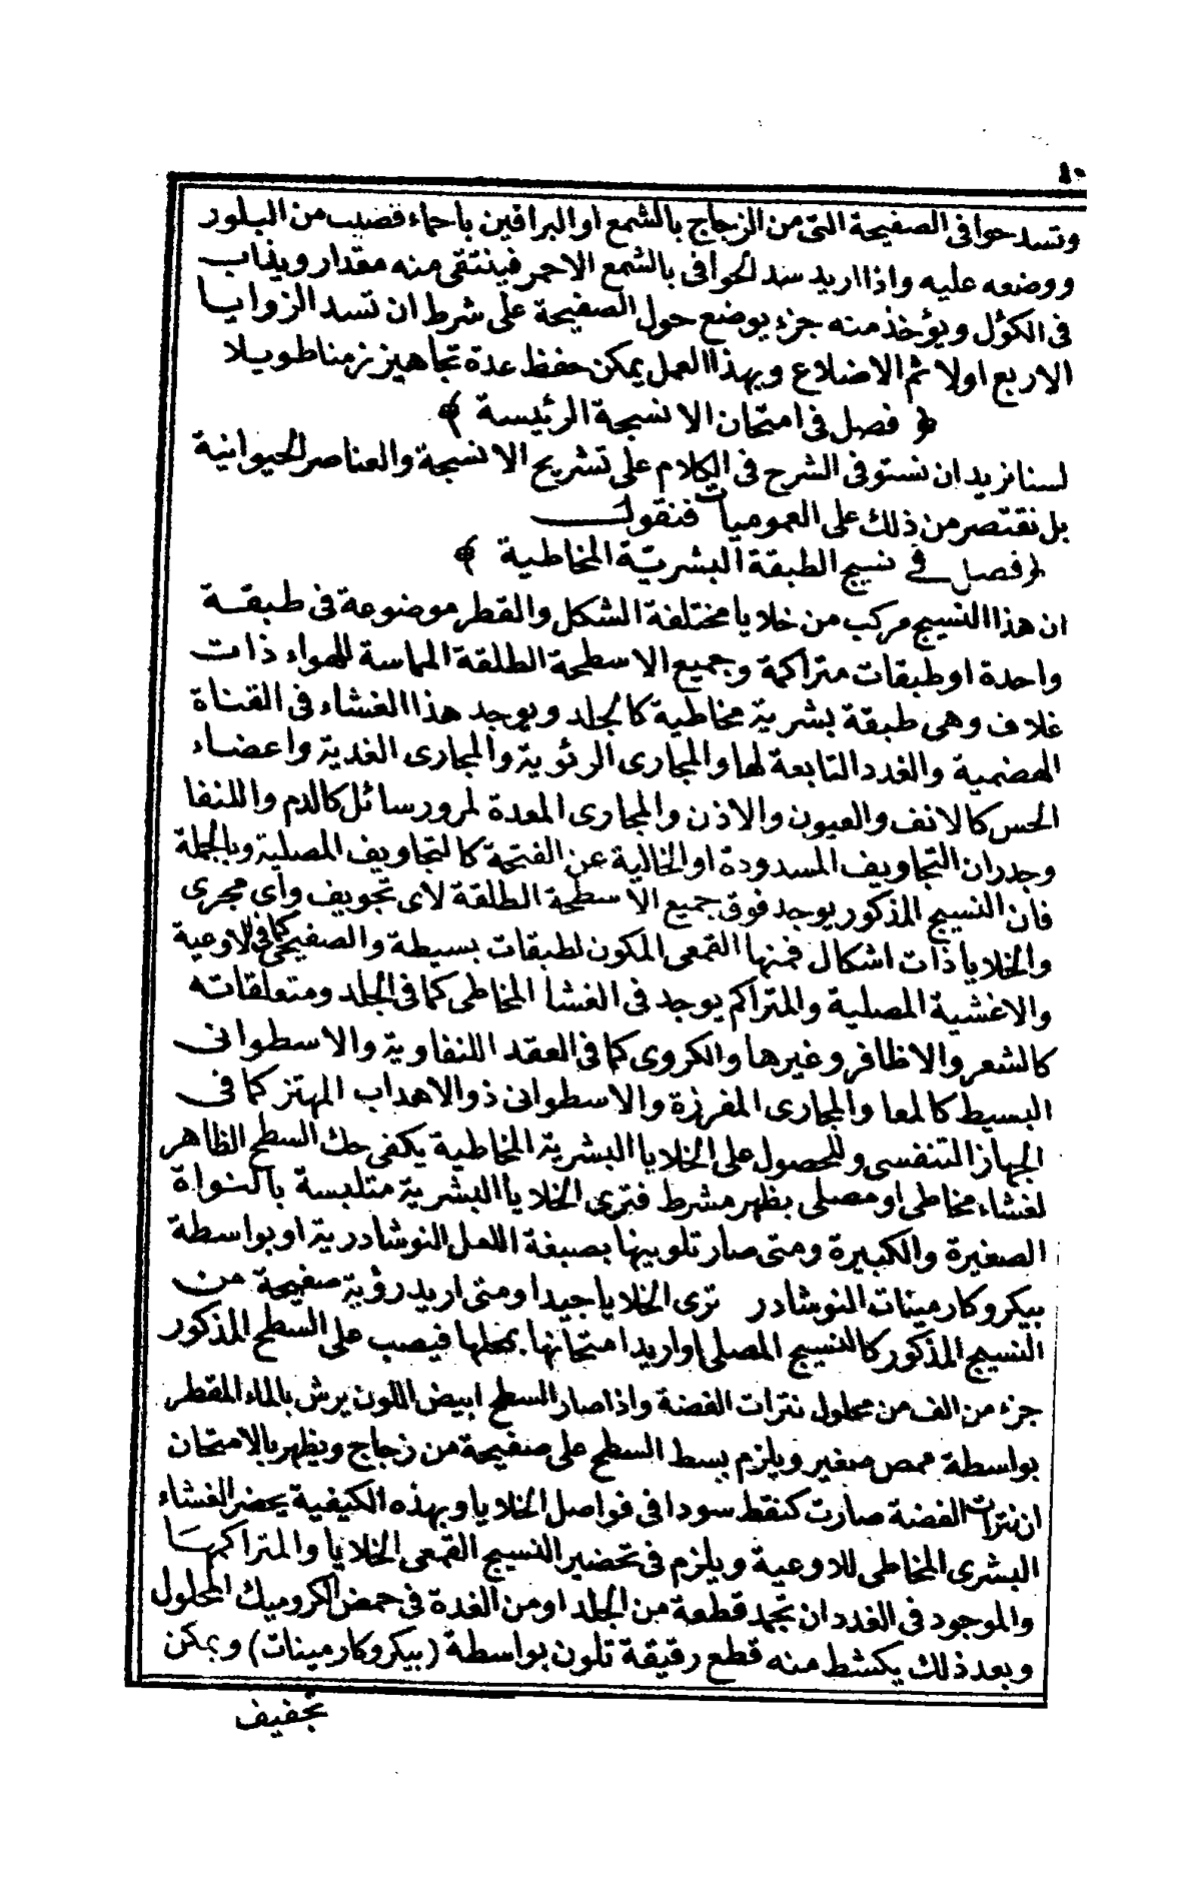 ٤٠
وتسد حوافى الصفيحة التى من الزجاج بالشمع او البرافين باحماء قضيب من البلور
ووضعه عليه واذا اريد سد الحوافى بالشمع الاحمر فينتقى منه مقدار ويذاب
فى الكؤل ويؤخذ منه جزء يوضع حول الصفيحة على شرط ان تسد الزوايا
الاربع اولا ثم الاضلاع وبهذا العمل يمكن حفظ عدة تجاهيز زمنا طويلا
﴿ فصل فى امتحان الانسجة الرئيسة ﴾
لسنا نريد ان نستوفى الشرح فى الكلام على تشريح الانسجة والعناصر الحيوانية
بل نقتصر من ذلك على العموميات فنقول
﴿ فصل فى نسيج الطبقة البشريّة المخاطية ﴾
ان هذا النسيج مركب من خلايا مختلفة الشكل والقطر موضوعة فى طبقة
واحدة او طبقات متراكمة وجميع الاسطحة الطلقة المماسة للهواء ذات
غلاف وهى طبقة بشرية مخاطية كالجلد ويوجد هذا الغشاء فى القناة
الهضمية والغدد التابعة لها والمجارى الرئوية والمجارى الغدية واعضاء
الحس كالانف والعيون والاذن والمجارى المعدة لمرور سائل كالدم واللنفا
وجدران التجاويف المسدودة او الخالية عن الفتحة كالتجاويف المصلية وبالجملة
فان النسيج المذكور يوجد فوق جميع الاسطحة الطلقة لاى تجويف واى مجرى
والخلايا ذات اشكال فمنها القمعى المكون لطبقات بسيطة والصفيحى كما فى الاوعية
والاغشية المصلية والمتراكم يوجد فى الغشا المخاطى كما فى الجلد ومتعلقاته
كالشعر والاظافر وغيرها والكروى كما فى العقد اللنفاوية والاسطوانى
البسيط كالمعا والمجارى المفرزة والاسطوانى ذو الاهداب المهتز كما فى
الجهاز التنفسى وللحصول على الخلايا البشرية المخاطية يكفى حك السطح الظاهر
لغشاء مخاطى او مصلى بظهر مشرط فترى الخلايا البشرية متلبسة بالنواة
الصغيرة والكبيرة ومتى صار تلوينها بصبغة اللعل النوشادرية او بواسطة
بيكروكارمينات النوشادر ترى الخلايا جيدا ومتى اريد رؤية صفيحة من
النسيج المذكور كالنسيج المصلى او اريد امتحانها بمحلها فيصب على السطح المذكور
جزء من الف من محلول نترات الفضة واذا صار السطح ابيض اللون يرش بالماء المقطر
بواسطة ممص صغير ويلزم بسط السطح على صفيحة من زجاج ويظهر بالامتحان
ان نترات الفضة صارت كنقط سودا فى فواصل الخلايا وبهذه الكيفية يحضر الغشاء
البشرى المخاطى للاوعية ويلزم فى تحضير النسيج القمعى الخلايا والمتراكمها
والموجود فى الغدد ان تجمد قطعة من الجلد او من الغدة فى حمض الكروميك المحلول
وبعد ذلك يكشط منه قطع رقيقة تلون بواسطة (بيكروكارمينات) ويمكن
تجفيف